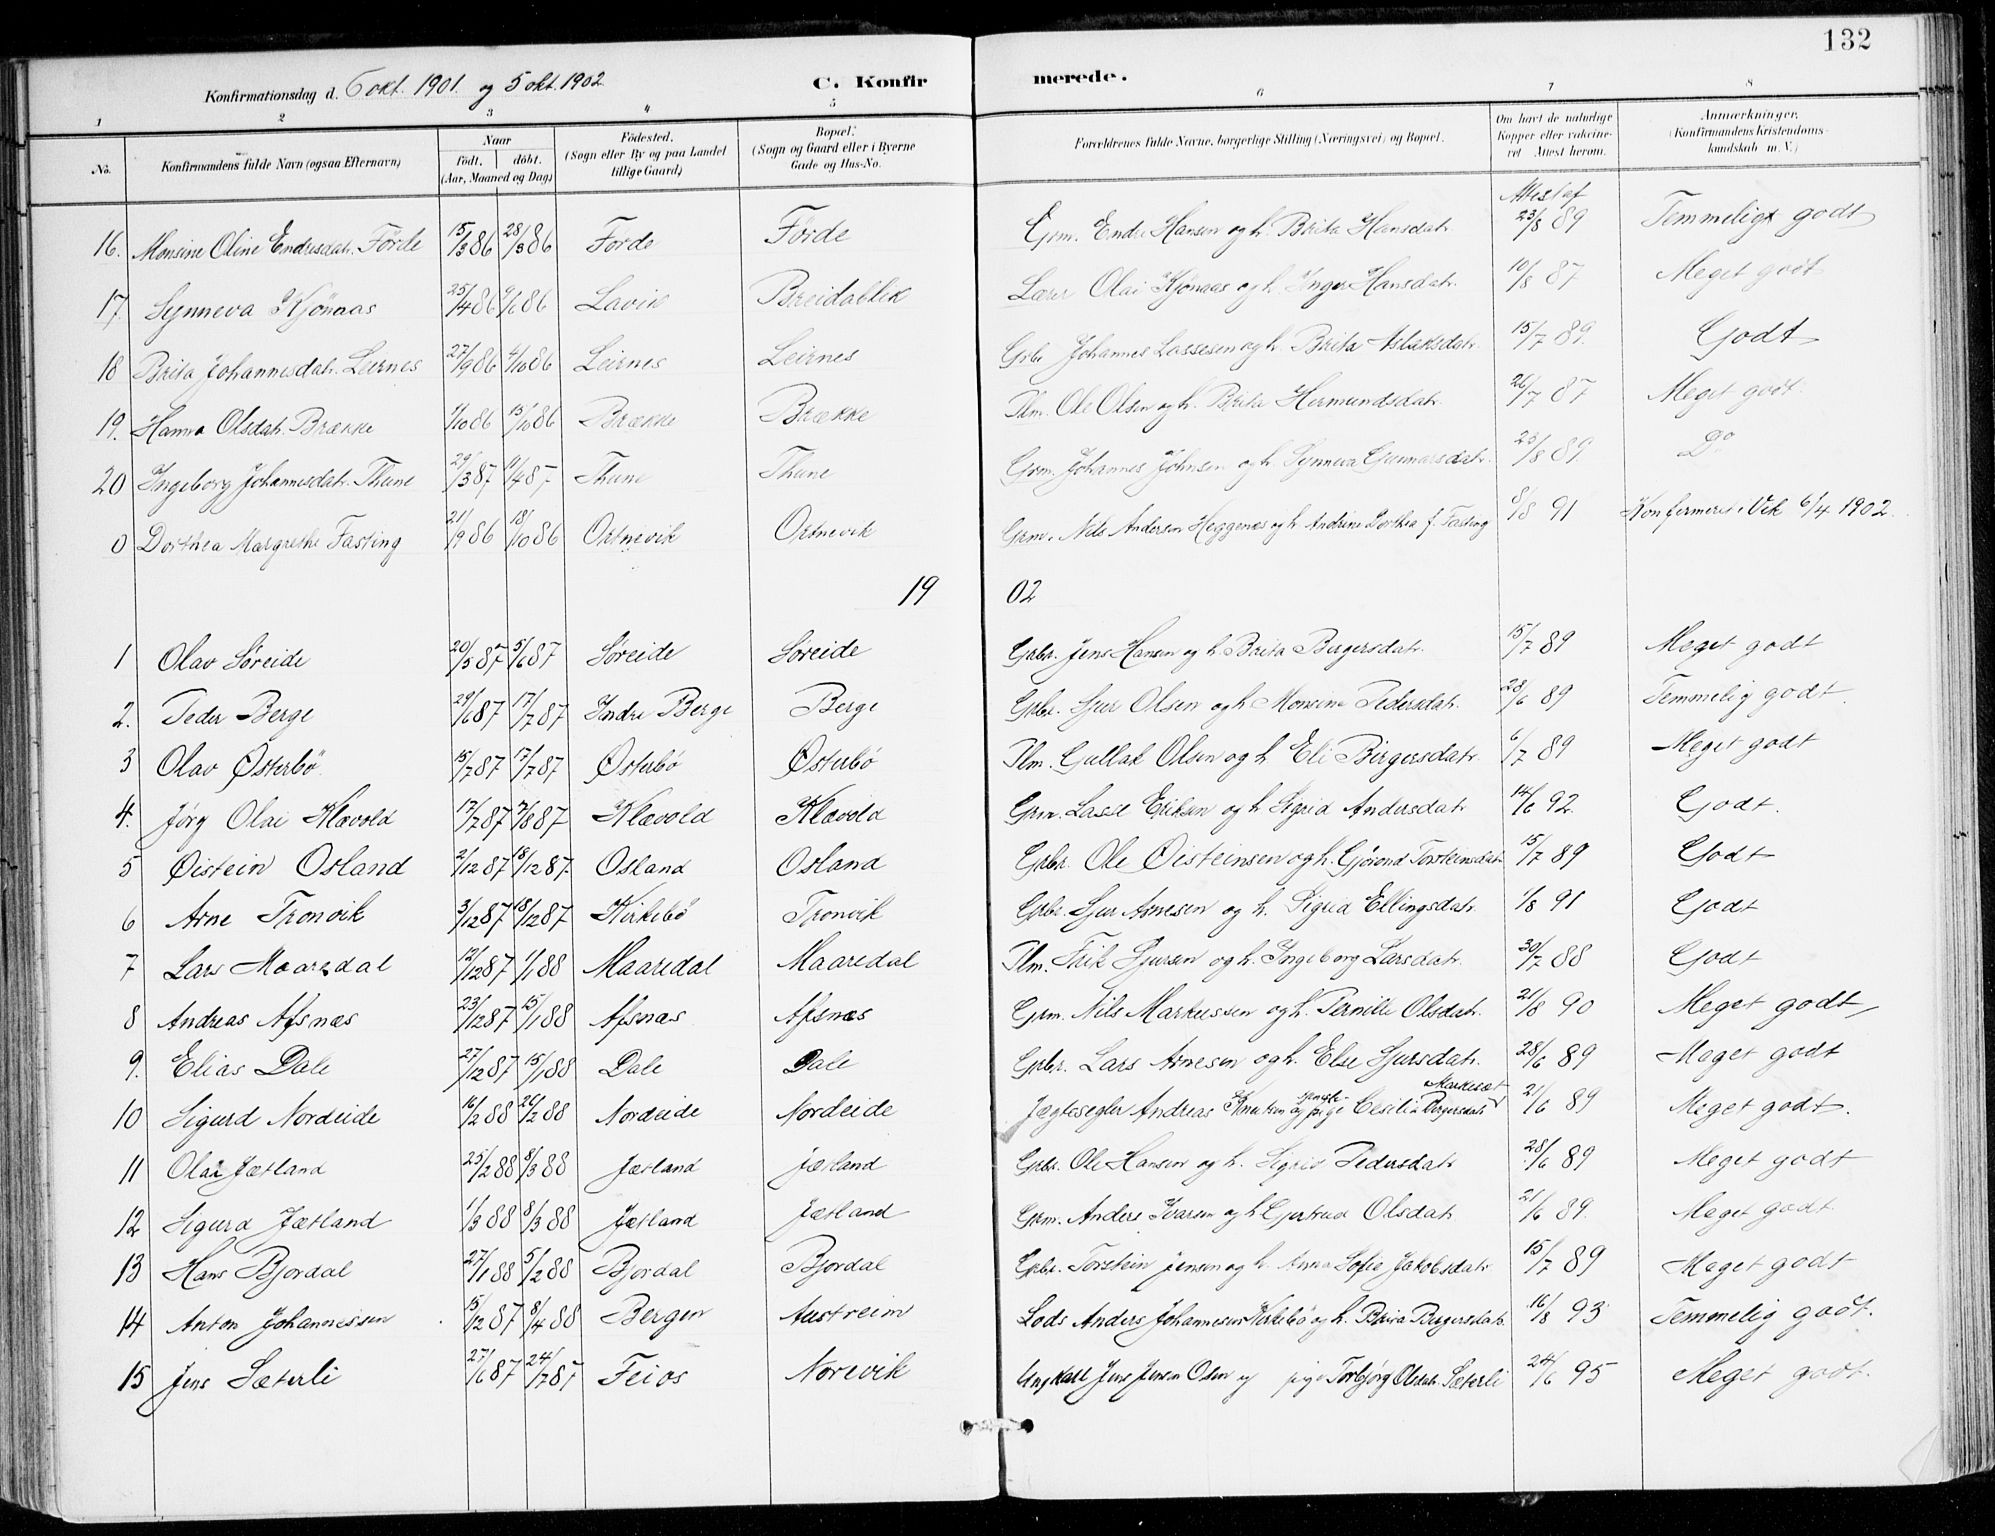 132
Konfirmationsdag d. 6 okt. 1901 og 5 okt. 1902 C. Konfirmerede.
1 2 3 4 5 6 7 8
No. Konfirmandens fulde Navn (ogsaa Efternavn) Naar födt. döbt. (Aar, Maaned og Dag) Födested. (Sogn eller By og paa Landet tillige Gaard) Bopæl. (Sogn og Gaard eller i Byerne Gade og Hus-No. Forældrenes fulde Navne, borgerlige Stilling (Næringsvei) og Bopæl. Om havt de naturlige Kopper eller vakcineret. Attest herom. Anmærkninger. (Konfirmandens Kristendomskundskab m. V.)
Attest af
16. Monsine Oline Endresdatr. Förde 15/3 86 28/3 86 Förde Förde Grm. Endre Hansen og h. Brita Hansdatr. 23/8 89 Temmeligt godt
17. Synneva Kjönaas 25/4 86 /6 86 Lavik Breidablik Lærer Olai Kjönaas og h. Inger Hansdatr. 10/8 87 Meget godt
18 Brita Johannesdatr. Leirnes 27/9 86 4/10 86 Leirnes Leirnes Grbr. Johannes Lassesen og h. Brita Aslaksdatr. 15/7 89. Godt
19. Hanna Olsdatr. Brække 1/10 86 15/10 86 Brække Brække Plm. Ole Olsen og h. Brita Hermundsdatr. 26/7 87 Meget godt
20 Ingeborg Johannesdatr. Thune 29/3 87 11/4 87 Thune Thune Grm. Johannes Johnsen og h. Synneva Gunnarsdatr. 23/8 89. Do
0 Dorthea Margrethe Fasting 21/9 86 18/10 86 Ortnevik Ortnevik Grm. Nils Andersen Heggenes og h. Andrine Dorthea f. Fasting 8/8 91 Konfirmeret i Vik 6/4 1902.
1902
1 Olav Söreide 20/5 87 5/6 87 Söreide Söreide Grbr. Jens Hansen og h. Brita Birgersdatr. 15/7 89 Meget godt
2. Peder Berge 29/6 87 17/7 87 Indre Berge Berge Grbr. Sjur Olsen og h. Monsine Pedersdatr. 28/6 89 Temmelig godt.
3 Olav Østerbö 15/7 87 17/7 87 Østerbö Østerbö Plm. Gullak Olsen og h. Eli Birgersdatr. 6/7 89 Meget godt
4. Jörg Olai Klævold 17/7 87 7/8 87 Klævold Klævold Grm. Lasse Eriksen og h. Sigrid Andersdatr. 14/6 92. Godt.
5 Øistein Osland 2/12 87 18/12 87. Osland Osland Grbr. Ole Øisteinsen og h. Gjörond Torsteinsdatr. 15/7 89 Godt
6 Arne Tronvik 3/12 87 18/12 87 Kirkebö Tronvik Grbr. Sjur Arnesen og h. Sigrid Ellingsdatr. 1/8 91 Godt
7 Lars Maaredal 12/12 87 1/1 88 Maaredal Maaredal Plm. Erik Sjursen og h. Ingeborg Larsdatr. 30/7 88 Godt
8 Andreas Afsnæs 23/12 87 15/1 88 Afsnæs Afsnæs Grm. Nils Markussen og h. Pernille Olsdatr. 21/8 90 Meget godt
9. Elias Dale 27/12 87 15/1 88 Dale Dale Grbr. Lars Arnesen og h. Else Sjursdatr. 28/6 89 Meget godt
10 Sigurd Nordeide 16/2 88 26/2 88 Nordeide Nordeide Jægtesegler Andreas Knutsen og pige Cesilia Birgersdatr. 21/6 89 Meget godt.
11 Olai Jætland 25/2 88 8/3 88 Jætland Jætland Grbr. Ole Hansen og h. Sigrid Pedersdatr. 28/6 89 Meget godt
12 Sigurd Jætland 1/3 88 8/3 88 Jætland Jætland Grm. Anders Ivarsen og h. Gjertrud Olsdatr. 21/6 89. Meget godt
13 Hans Bjordal 27/1 88 5/2 88 Bjordal Bjordal Grbr. Torstein Jensen og h. Anna Sofie Jakobsdatr. 15/7 89 Meget godt
14 Anton Johannessen 15/12 87 8/4 88 Bergen Austreim Lods Anders Johannesen Kirkebö og h. Brita Birgersdatr. 16/8 93 Temmelig godt.
15 Jens Sæterli 27/6 87 24/7 87 Feios Norevik Ungkall Jens Jensen Olsen og pige Torbjörg Olsdatr. Sæterli 24/6 95 Meget godt.